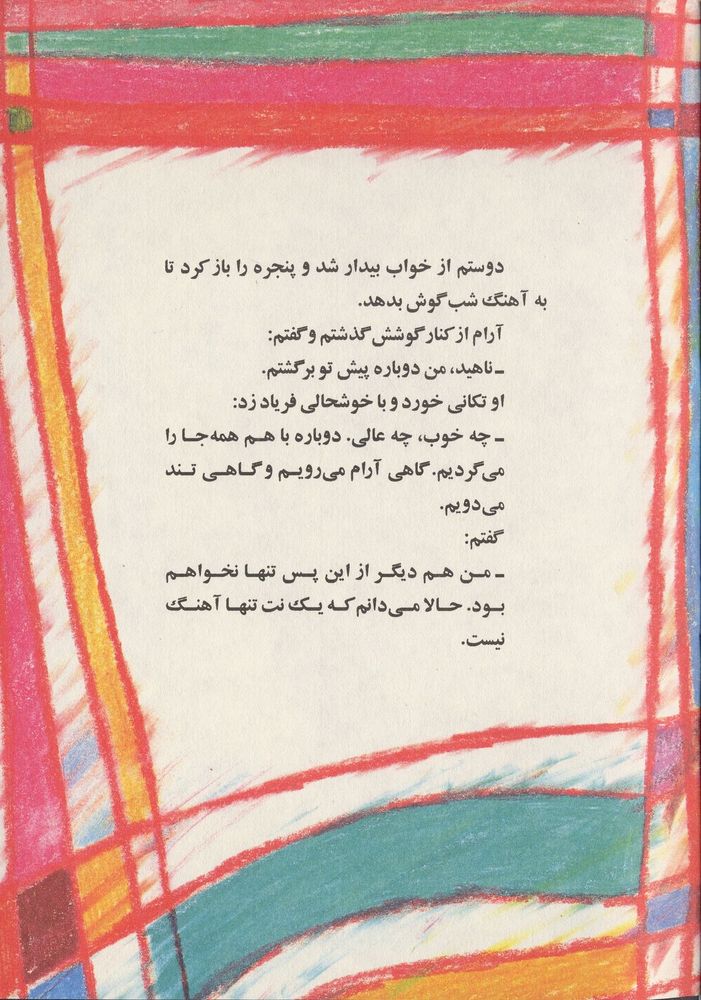 دوستم از خواب بیدار شد و پنجره را باز کرد تا
به آهنگ شب گوش بدهد.
آرام از کنار گوشش گذشتم و گفتم:
ـ ناهید، من دوباره پیش تو برگشتم.
او تکانی خورد و با خوشحالی فریاد زد:
ـ چه خوب، چه عالی. دوباره با هم همه‌جا را
می‌گردیم. گاهی آرام می‌رویم و گاهی تند
می‌دویم.
گفتم:
ـ من هم دیگر از این پس تنها نخواهم
بود. حالا می‌دانم که یک نت تنها آهنگ
نیست.